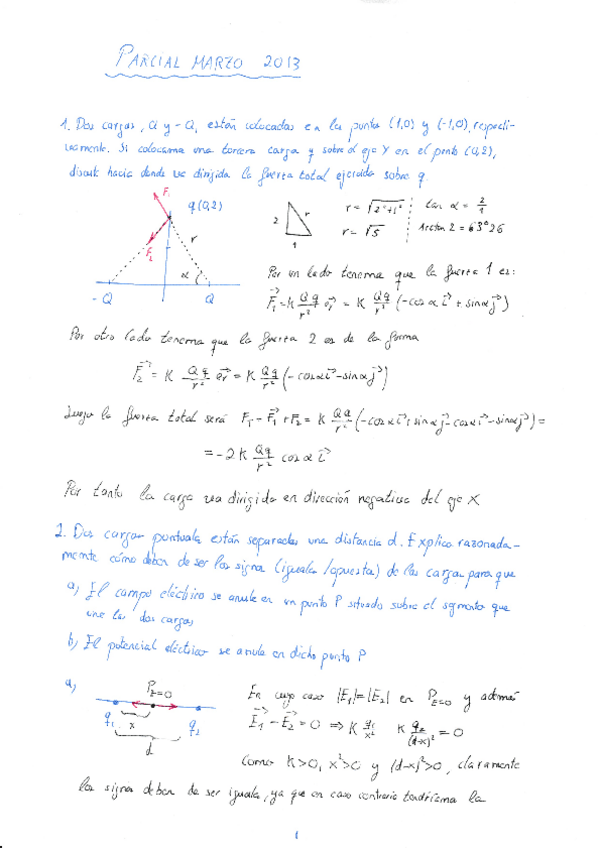 PARCIAL MARZO 2013
1. Dos cargas, Q y -Q, están colocadas en los puntos (1,0) y (-1,0), respecti-
vamente. Si colocamos una tercera carga q sobre el eje Y en el punto (0,2),
discute hacia donde va dirigida la fuerza total ejercida sobre q.
F₁
q(0,2)
F₂
r
α
-Q
Q
2
r
1
r = √2²+1²
r = √5
tan α = 2/1
Arctan 2 = 63º 26
Por un lado tenemos que la fuerza 1 es:
F₁ = K Qq/r² e_r = K Qq/r² (-cos α i + sin α j)
Por otro lado tenemos que la fuerza 2 es de la forma
F₂ = K Qq/r² e_r = K Qq/r² (-cos α i - sin α j)
Luego la fuerza total será F_T = F₁ + F₂ = K Qq/r² (-cos α i + sin α j - cos α i - sin α j) =
= -2K Qq/r² cos α i
Por tanto la carga va dirigida en dirección negativa del eje X
2. Dos cargas puntuales están separadas una distancia d. Explica razonada-
mente cómo deben de ser los signos (iguales/opuestos) de las cargas para que
a) El campo eléctrico se anule en un punto P situado sobre el segmento que
une las dos cargas
b) El potencial eléctrico se anula en dicho punto P
a)
P E=0
q₁
x
q₂
d
En cuyo caso |E₁|=|E₂| en P E=0 y además
E₁ - E₂ = 0 ⇒ K q₁/x² K q₂/(d-x)² = 0
Como K>0, x²>0 y (d-x)²>0, claramente
los signos deben de ser iguales, ya que en caso contrario tendríamos la
1